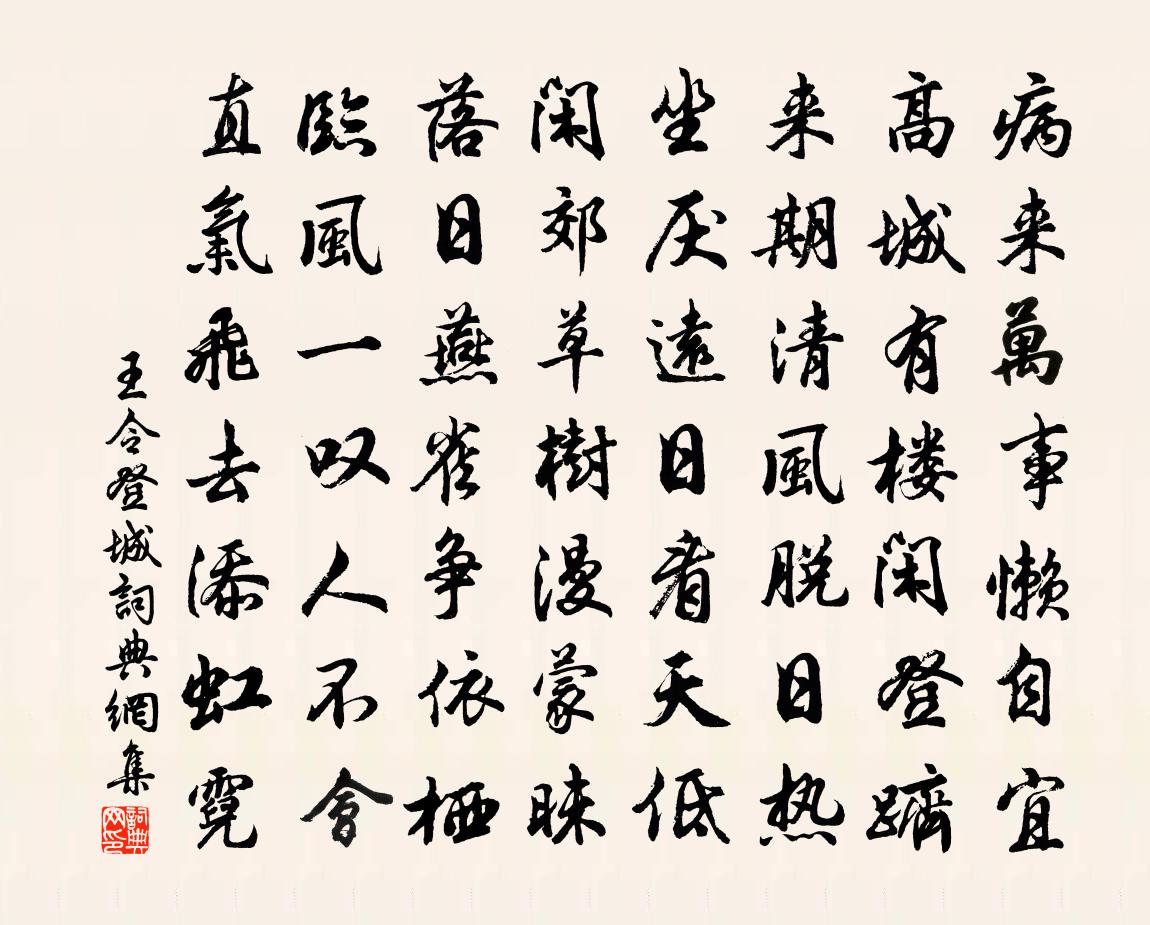 病来萬事懒自宜
髙城有楼闲登躋
来期清風脱日热
坐厌遠日看天低
闲郊草樹漫蒙昧
落日燕雀争依栖
臨風一叹人不會
直氣飛去添虹霓
王令登城詞典網集
詞典网印